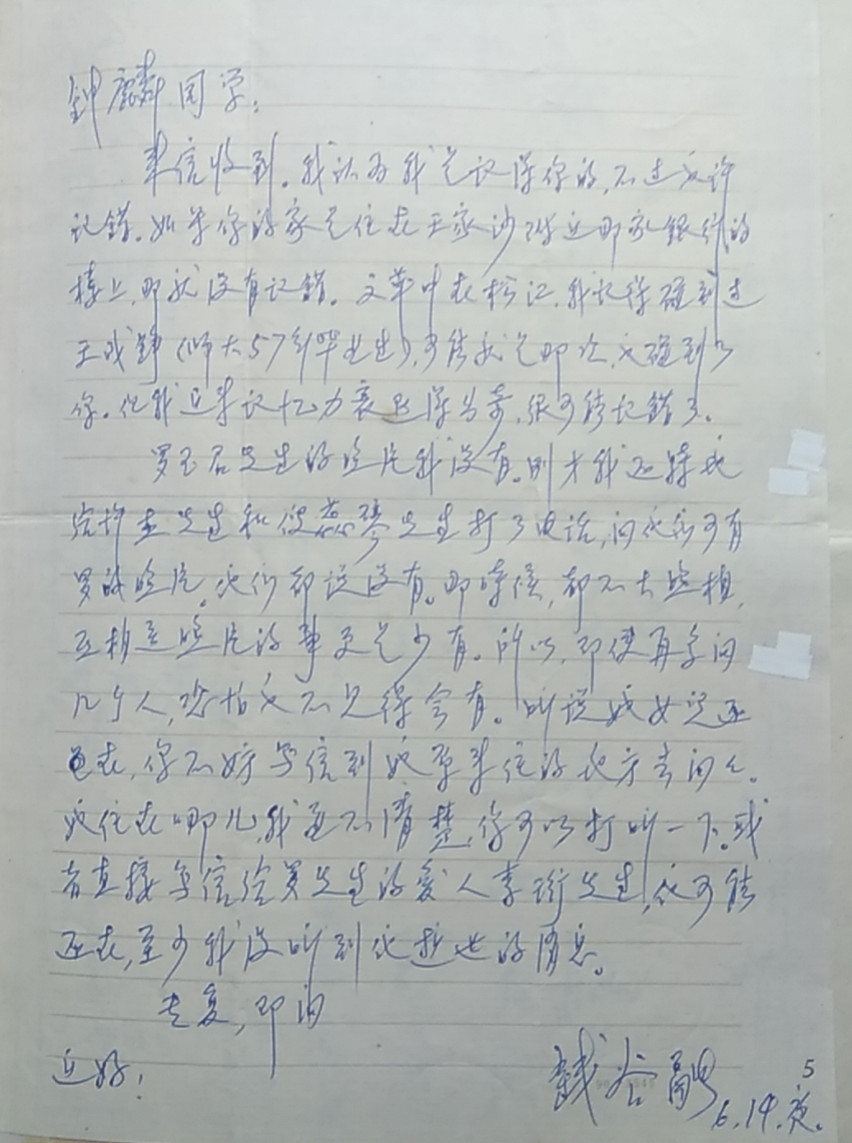 钟麟同学：
来信收到。我认为我是记得你的，不过也许
记错。如果你的家是住在王家沙附近那家银行的
楼上，那就没有记错。文革中在松江，我记得碰到过
王成铮（师大57年毕业生），可能就是那次，也碰到了
你。但我近来记忆力衰退得出奇，很可能记错了。
罗玉君先生的照片我没有。刚才我还特地
给许杰先生和倪蕊琴先生打了电话，问他们可有
罗的照片。他们都说没有。那时候，都不大照相，
互相送照片的事更是少有。所以，即使再多问
几个人，恐怕也不见得会有。听说她女儿还
在，你不妨写信到她原来住的地方去问问。
她住在哪儿，我并不清楚，你可以打听一下。或
者直接写信给罗先生的爱人李珩先生，他可能
还在，至少我没听到他逝世的消息。
专复，即问
近好！
钱谷融
6.14.夜。
5